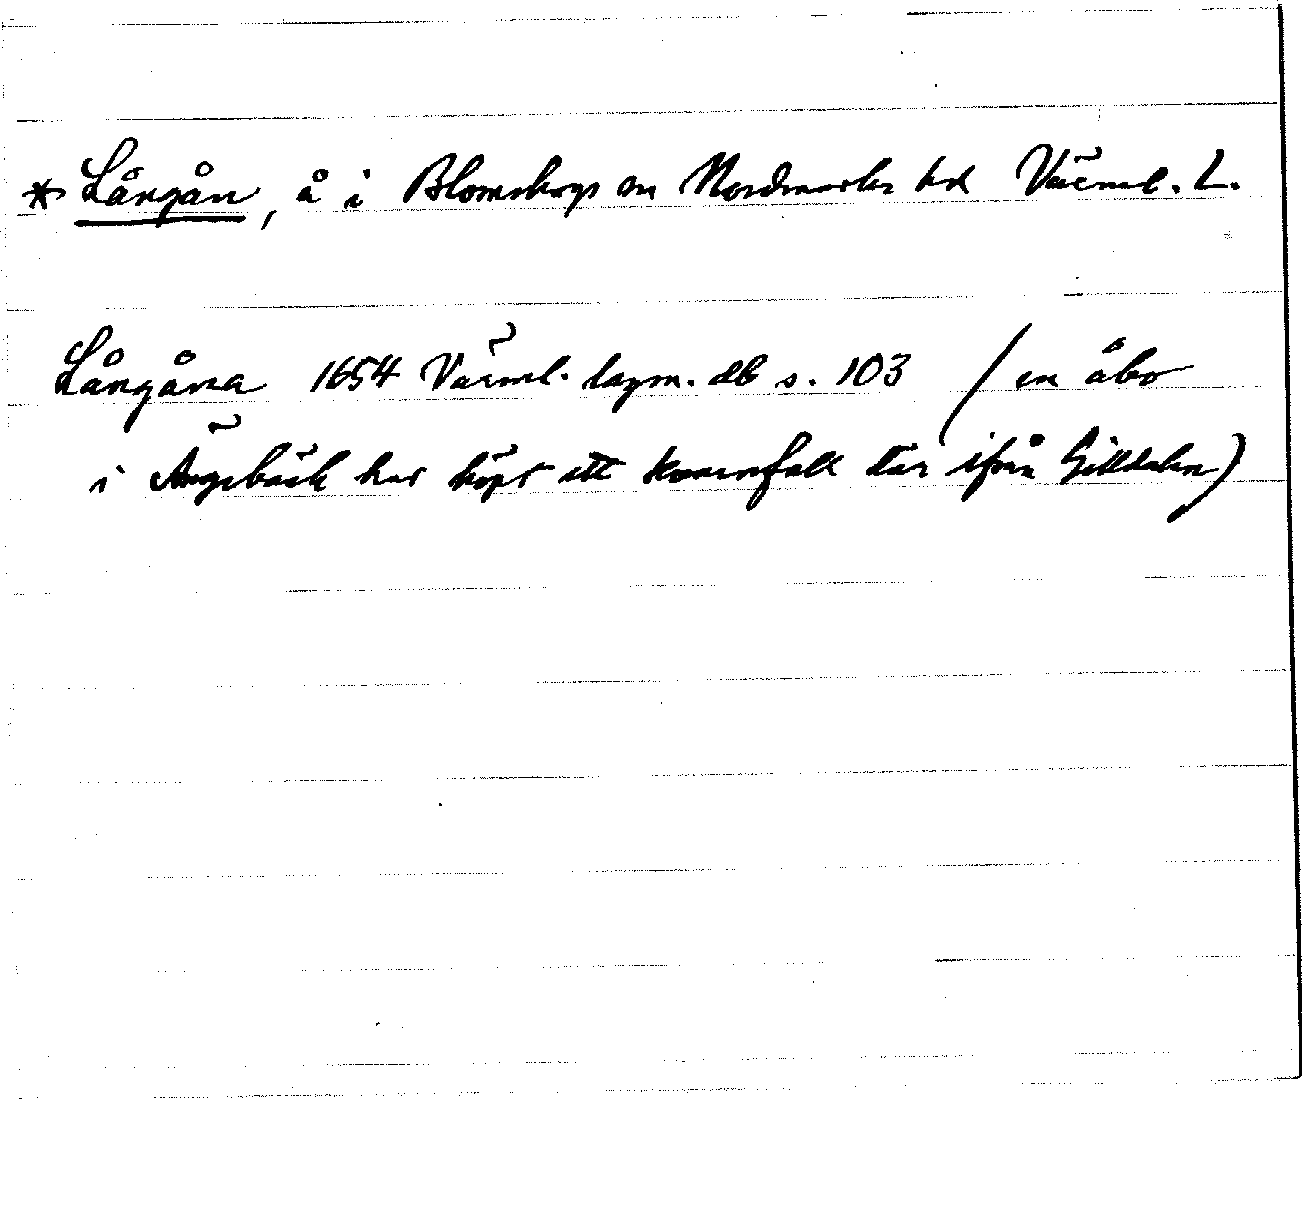 * Långån, å i Blomskogs sn Nordmarks hd Värml. L.
Långåna 1654 Värml. lagm. db s. 103 (en åbo
i Ängebäck har köpt ett kvarnfall där ifrån Gilldalen)